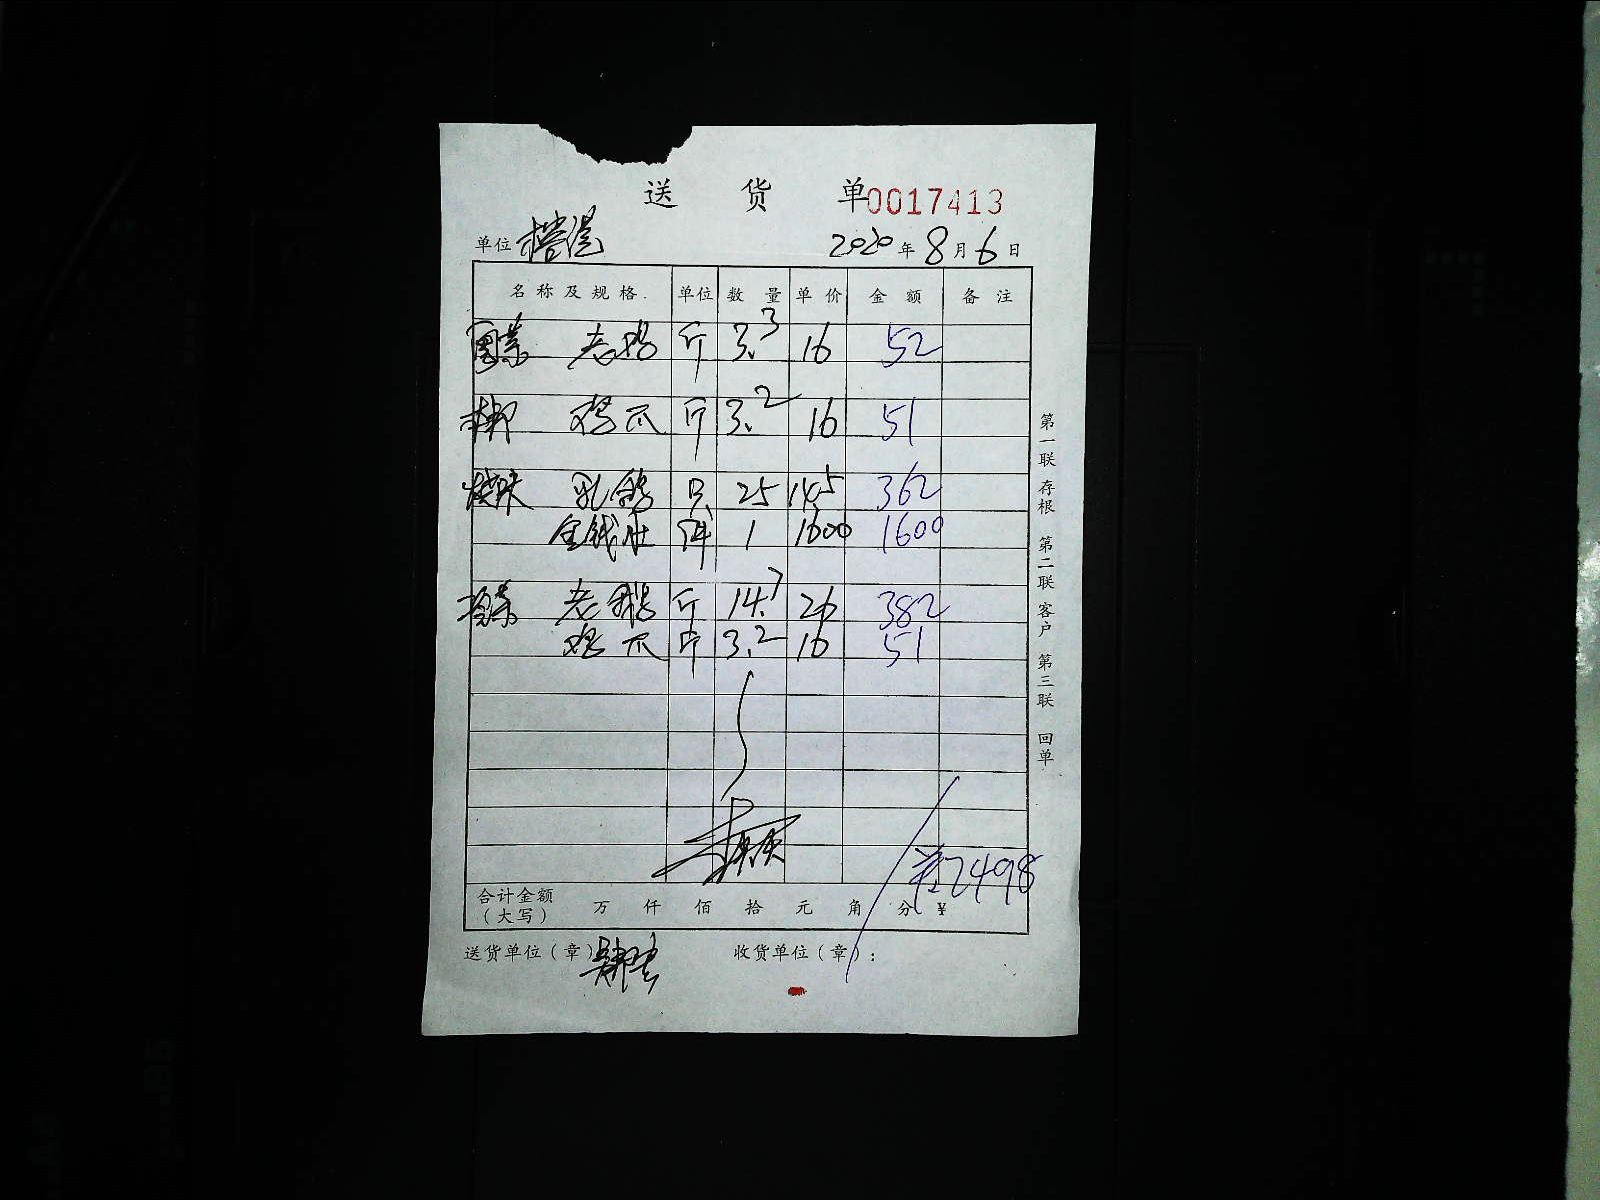 送 货 单 0017413
单位 2020 年 8 月 6 日
名称及规格. 单位 数 量 单 价 金 额 备 注
老鸡 斤 3.3 16 52
鸡爪 斤 3.2 16 51
烧味 乳鸽 只 25 14.5 362
金钱肚 件 1 1600 1600
老鹅 斤 14.7 26 382
鸡爪 斤 3.2 16 51
¥2498
合计金额（大写） 万 仟 佰 拾 元 角 分 ¥
送货单位（章） 收货单位（章）：
第一联 存根 第二联 客户 第三联 回单